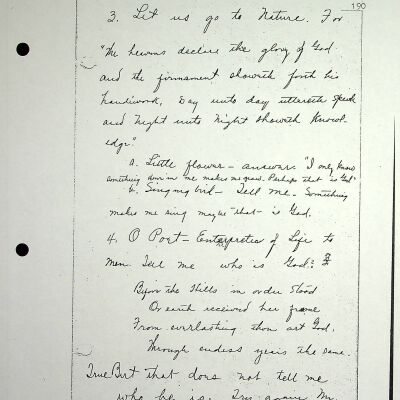 190
3. Let us go to Nature. For
"The heavens declare the glory of God
and the firmament showeth forth his
handiwork, Day unto day uttereth speech
and Night unto Night showeth knowl-
edge"
a. Little flower - answer: "I only know
something down in me makes me grow. Perhaps that is God"
b. Singing bird - Tell me - Something
makes me sing maybe that is God.
4. O Poet - Enterpreter of Life to
men Tell me who is God?
Before the Hills in order stood
Or earth received her frame
From everlasting thou art God.
Through endless years the same.
True But that does not tell me
who he is.